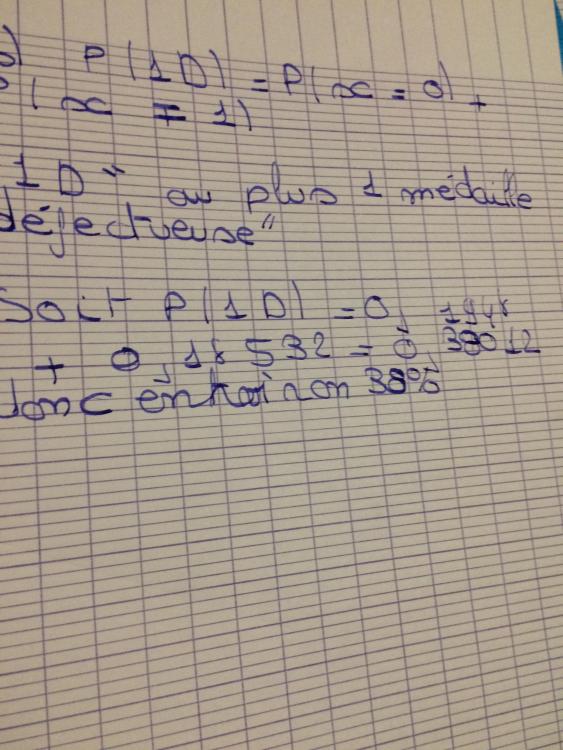 ) P(1D) = P(x = 0) +
P(x = 1)
1D" au plus 1 médaille
défectueuse"
Soit P(1D) = 0, 1948
+ 0,18 532 = 0, 38012
donc environ 38%